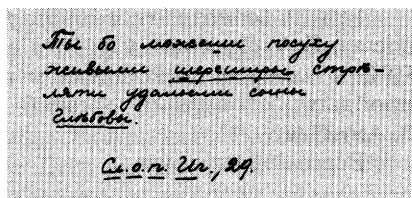 Ты бо можеши посуху
живыми шереширы стрѣ-
ляти удалыми сыны
Глѣбовы.
Сл. о. п. Иг., 29.